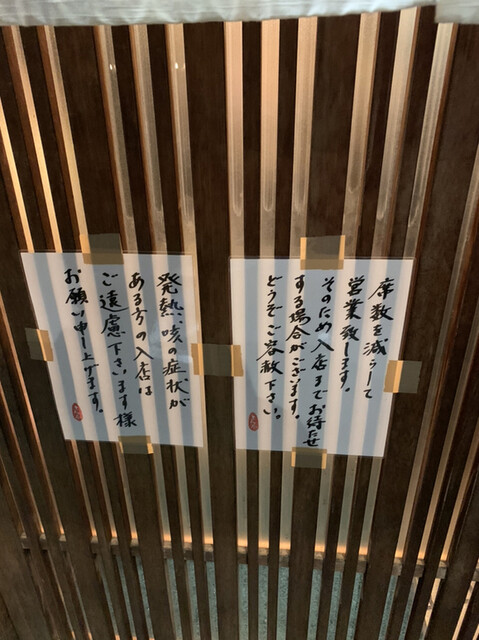 席数を減らして
営業致します。
そのため入店までお待たせ
する場合がございます。
どうぞご容赦下さい。
発熱、咳の症状が
ある方の入店は
ご遠慮下さいます様
お願い申し上げます。